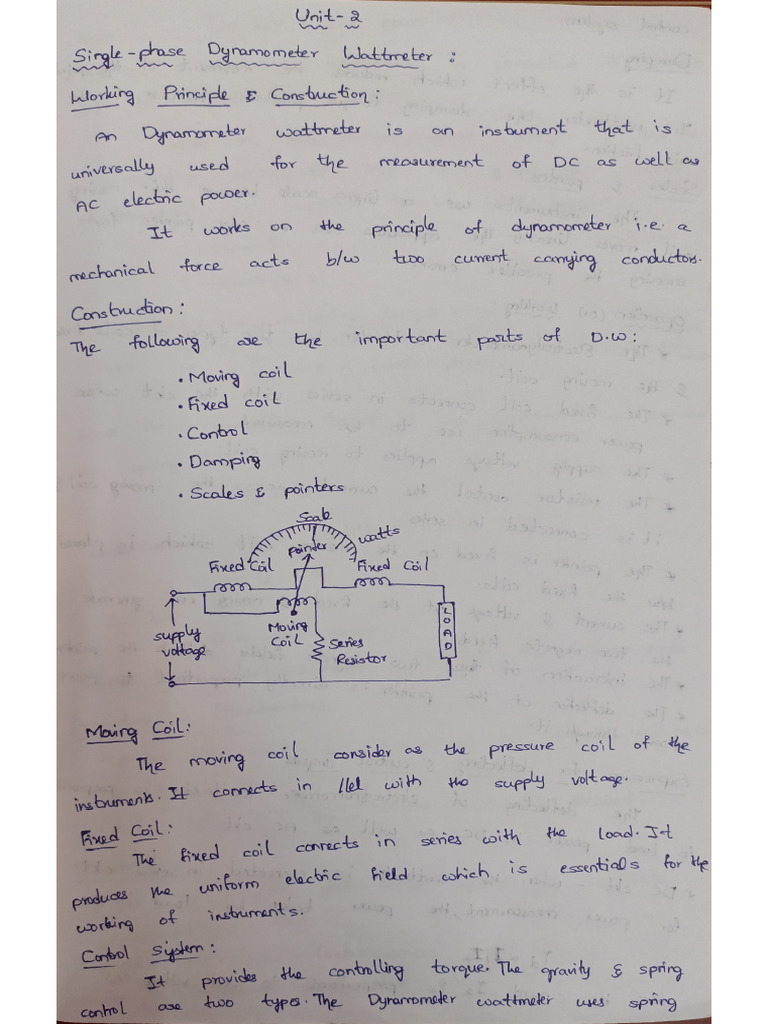 Unit-2
Single-phase Dynamometer Wattmeter :
Working Principle & Construction :
An Dynamometer wattmeter is an instument that is
universally used for the measurement of DC as well as
AC electric power.
It works on the principle of dynamometer i.e. a
mechanical force acts b/w two current carrying conductors.
Construction :
The following are the important parts of D.W :
• Moving coil
• Fixed coil
• Control
• Damping
• Scales & pointers
Scale
watts
pointer
Fixed Coil
Fixed Coil
supply
voltage
Moving
Coil
Series
Resistor
LOAD
Moving Coil :
The moving coil consider as the pressure coil of the
instruments. It connects in llel with the supply voltage.
Fixed Coil :
The fixed coil connects in series with the load. It
produces the uniform electric field which is essentials for the
working of instruments.
Control System :
It provides the controlling torque. The gravity & spring
control are two types. The Dynamometer wattmeter uses spring